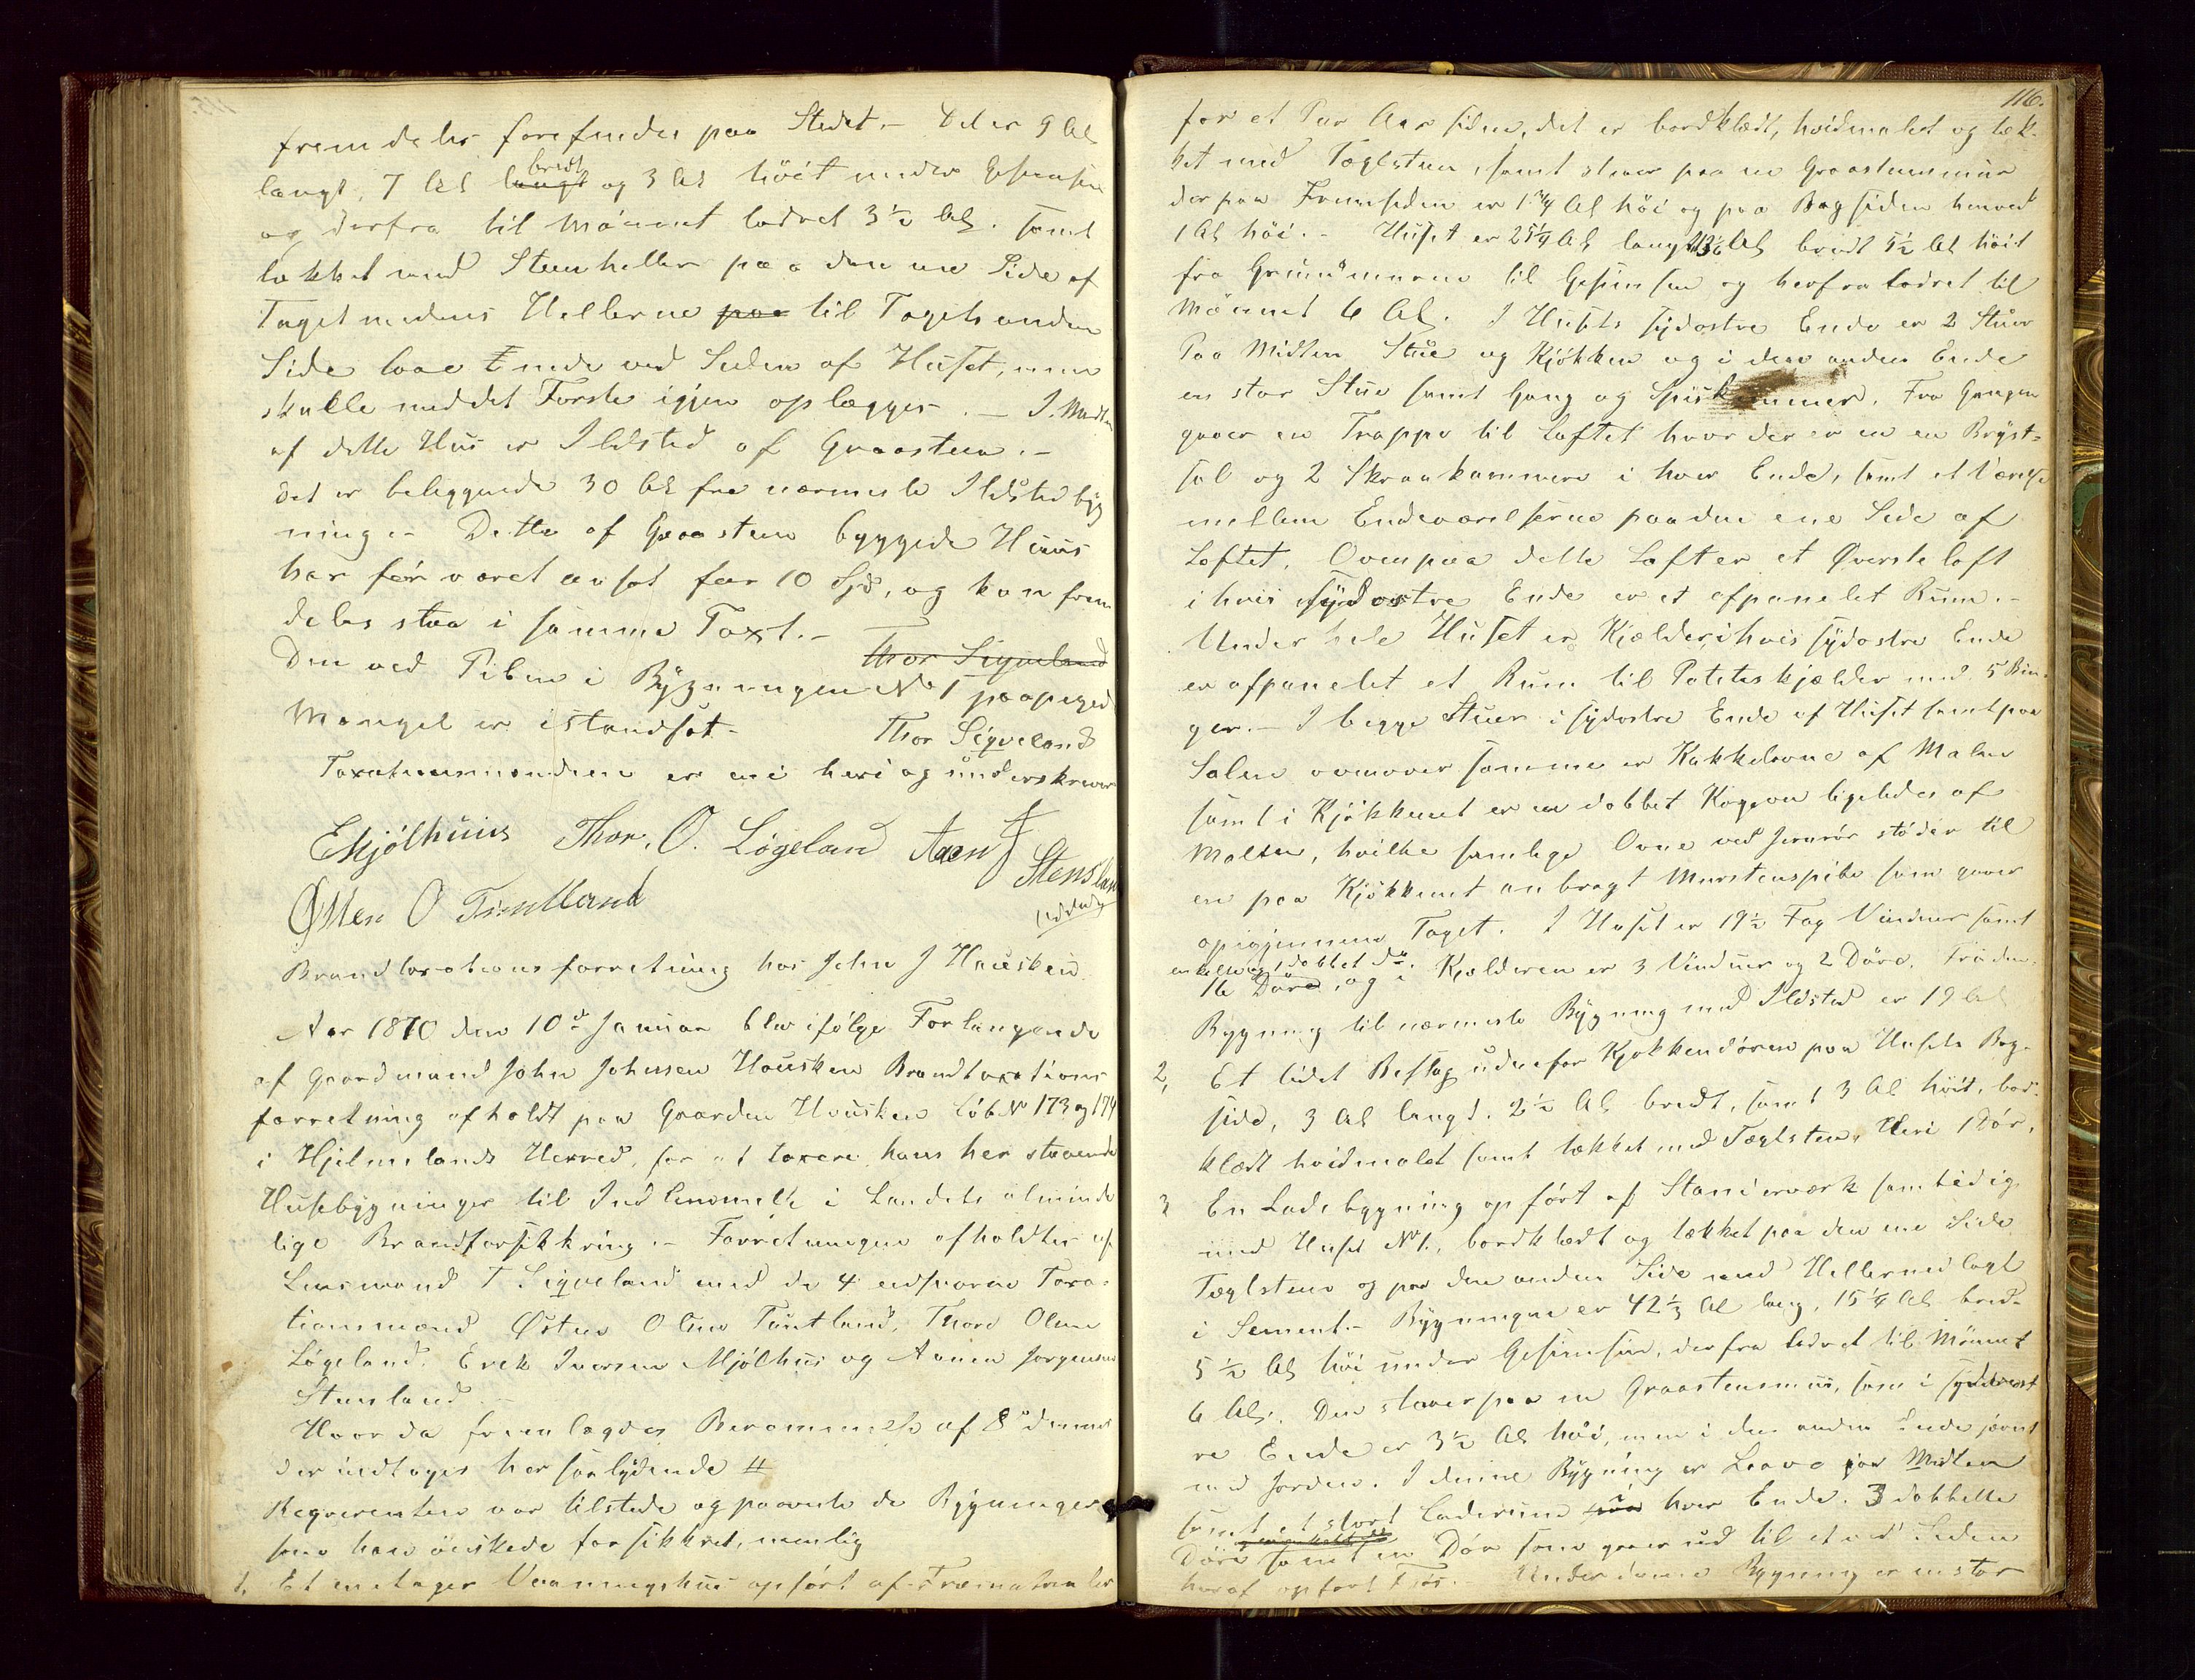 fremdeles forefindes paa Stedet. – Det er 9 Al
langt, 7 Al langt bredt og 3 Al höit under Gesimsen
og derfra til Mönnet lodret 3 1/2 Al. samt
tækket med Steenheller paa den ene Side af
Taget medens Hellerne paa til Tagets anden
Side laae nede ved Siden af Huset, men
skulle med det Förste igjen oplægges. – I Midten
af dette Hus er Ildsted af Graasteen. –
Det er beliggende 30 Al fra nærmeste Ildstedbyg
ning. – Dette af Graasteen byggede Huus
har för været ansat for 10 Spd, og kan frem
deles staa i samme Taxt. –
Thor Siqveland
Den ved Piben i Bygningen No 1 paapegede
Mangel er istandsat –
Thor Siqveland
Taxationsmændene er eni heri og underskrever
E Mjölhuus Thor. O. Løgeland Aaen J Stensland
Østen O Tuntland
Brandtaxationsforretning hos John J Hausken
Aar 1870 den 10de Januar blev ifölge Forlangende
af Gaardmand John Johnsen Hausken Brandtaxations
forretning afholdt paa Gaarden Hausken Löb No 173 og 174
i Hjelmelands Herred, for at taxere hans her staaende
Husebygninger til Indlemmelse i Landets alminde
lige Brandforsikkring. – Forretningen afholdtes af
Lensmand T Siqveland med de 4 eedsvorne Taxa-
tionsmænd Østen Olsen Tuntland, Thore Olsen
Løgeland, Erek Iversen Mjölhus og Aanen Jorgensen
Stensland. –
Hvor da fremlagdes Berammelse af 8de dennes
der indtages her saalydende #
Reqvirenten var tilstede og paaviste de Bygninger
som han önskede forsikkret, nemlig
1, Et en etages Vaaningshuus opfört af Træmaterialer
116.
for et Par Aar siden, det er bordklædt, hvidmalet og tæk-
ket med Tæglsteen, samt staaer paa en Graasteensmuur
der paa Fremsiden er 1 3/4 Al höi og paa Bagsiden henved
1 Al höi. – Huset er 25 1/4 Al langt 13 1/2 Al bredt 5 1/2 Al höit
fra Grundmuren til Gesimsen og herfra lodret til
Mönnet 6 Al. I Husets sydostre Ende er 2 Stuer
Paa Midten Stue og Kjökken og i den anden Ende
en stor Stue samt Gang og Spiskammer. Fra Gangen
gaaer en Trappe til Loftet hvor der er en en Bryst-
sal og 2 Skraakammere i hver Ende, samt et Værelse
mellem Endeværelserne paa den ene Side af
Loftet. Ovenpaa dette Loft er et Øverste loft
i hvis sydostre Ende er et afpanelet Rum. –
Under hele Huset er Kjælder, i hvis sydostre Ende
er afpanelet et Rum til Potetskjælder med 5 Bin-
ger. – I begge Stuer i sydostre Ende af Huset samt paa
Salen ovenover samme er Kakkelovne af Malm
samt i Kjökkenet er en dobbet Kogeovn ligeledes af
Malm, hvilke samlige Ovne ved Jernrör stöder til
en paa Kjökkenet anbragt Murstenspibe som gaaer
op igjennem Taget. I Huset er 19 1/2 Fag Vinduer samt
16 Döre, og i Kjælderen er 3 Vinduer og 2 Döre. Fra denne
Bygning til nærmeste Bygning med Ildsted er 19 Al
2, Et lidet Beslag udenfor Kjökkendören paa Husets Bag-
side, 3 Al langt. 2 1/2 Al bredt, samt 3 Al höit, bord-
klædt hvidmalet samt tækket med Tæglsten. Heri 1 Dör.
3 En Ladebygning opfört af Stavverværk samtidig
med Huset No 1., bordklædt og tækket paa den ene Side
Tæglsteen og paa den anden Side med Heller nedlagt
i Sement. – Bygningen er 42 1/3 Al lang, 15 1/4 Al bred
5 1/2 Al höi under Gesimsen, derfra lodret til Mönnet
6 Al. Den staaer paa en Graasteensmuur, som i sydvest
re Ende er 3 1/2 Al höi, men i den anden Ende jævnt
med Jorden. I denne Bygning er Laave paa Midten
samt et stort Laderum i hver Ende. 3 dobbelte
Döre samt en Dör som gaaer ud til et ved Siden
heraf opfört Fjös. – Under denne Bygning er en stor